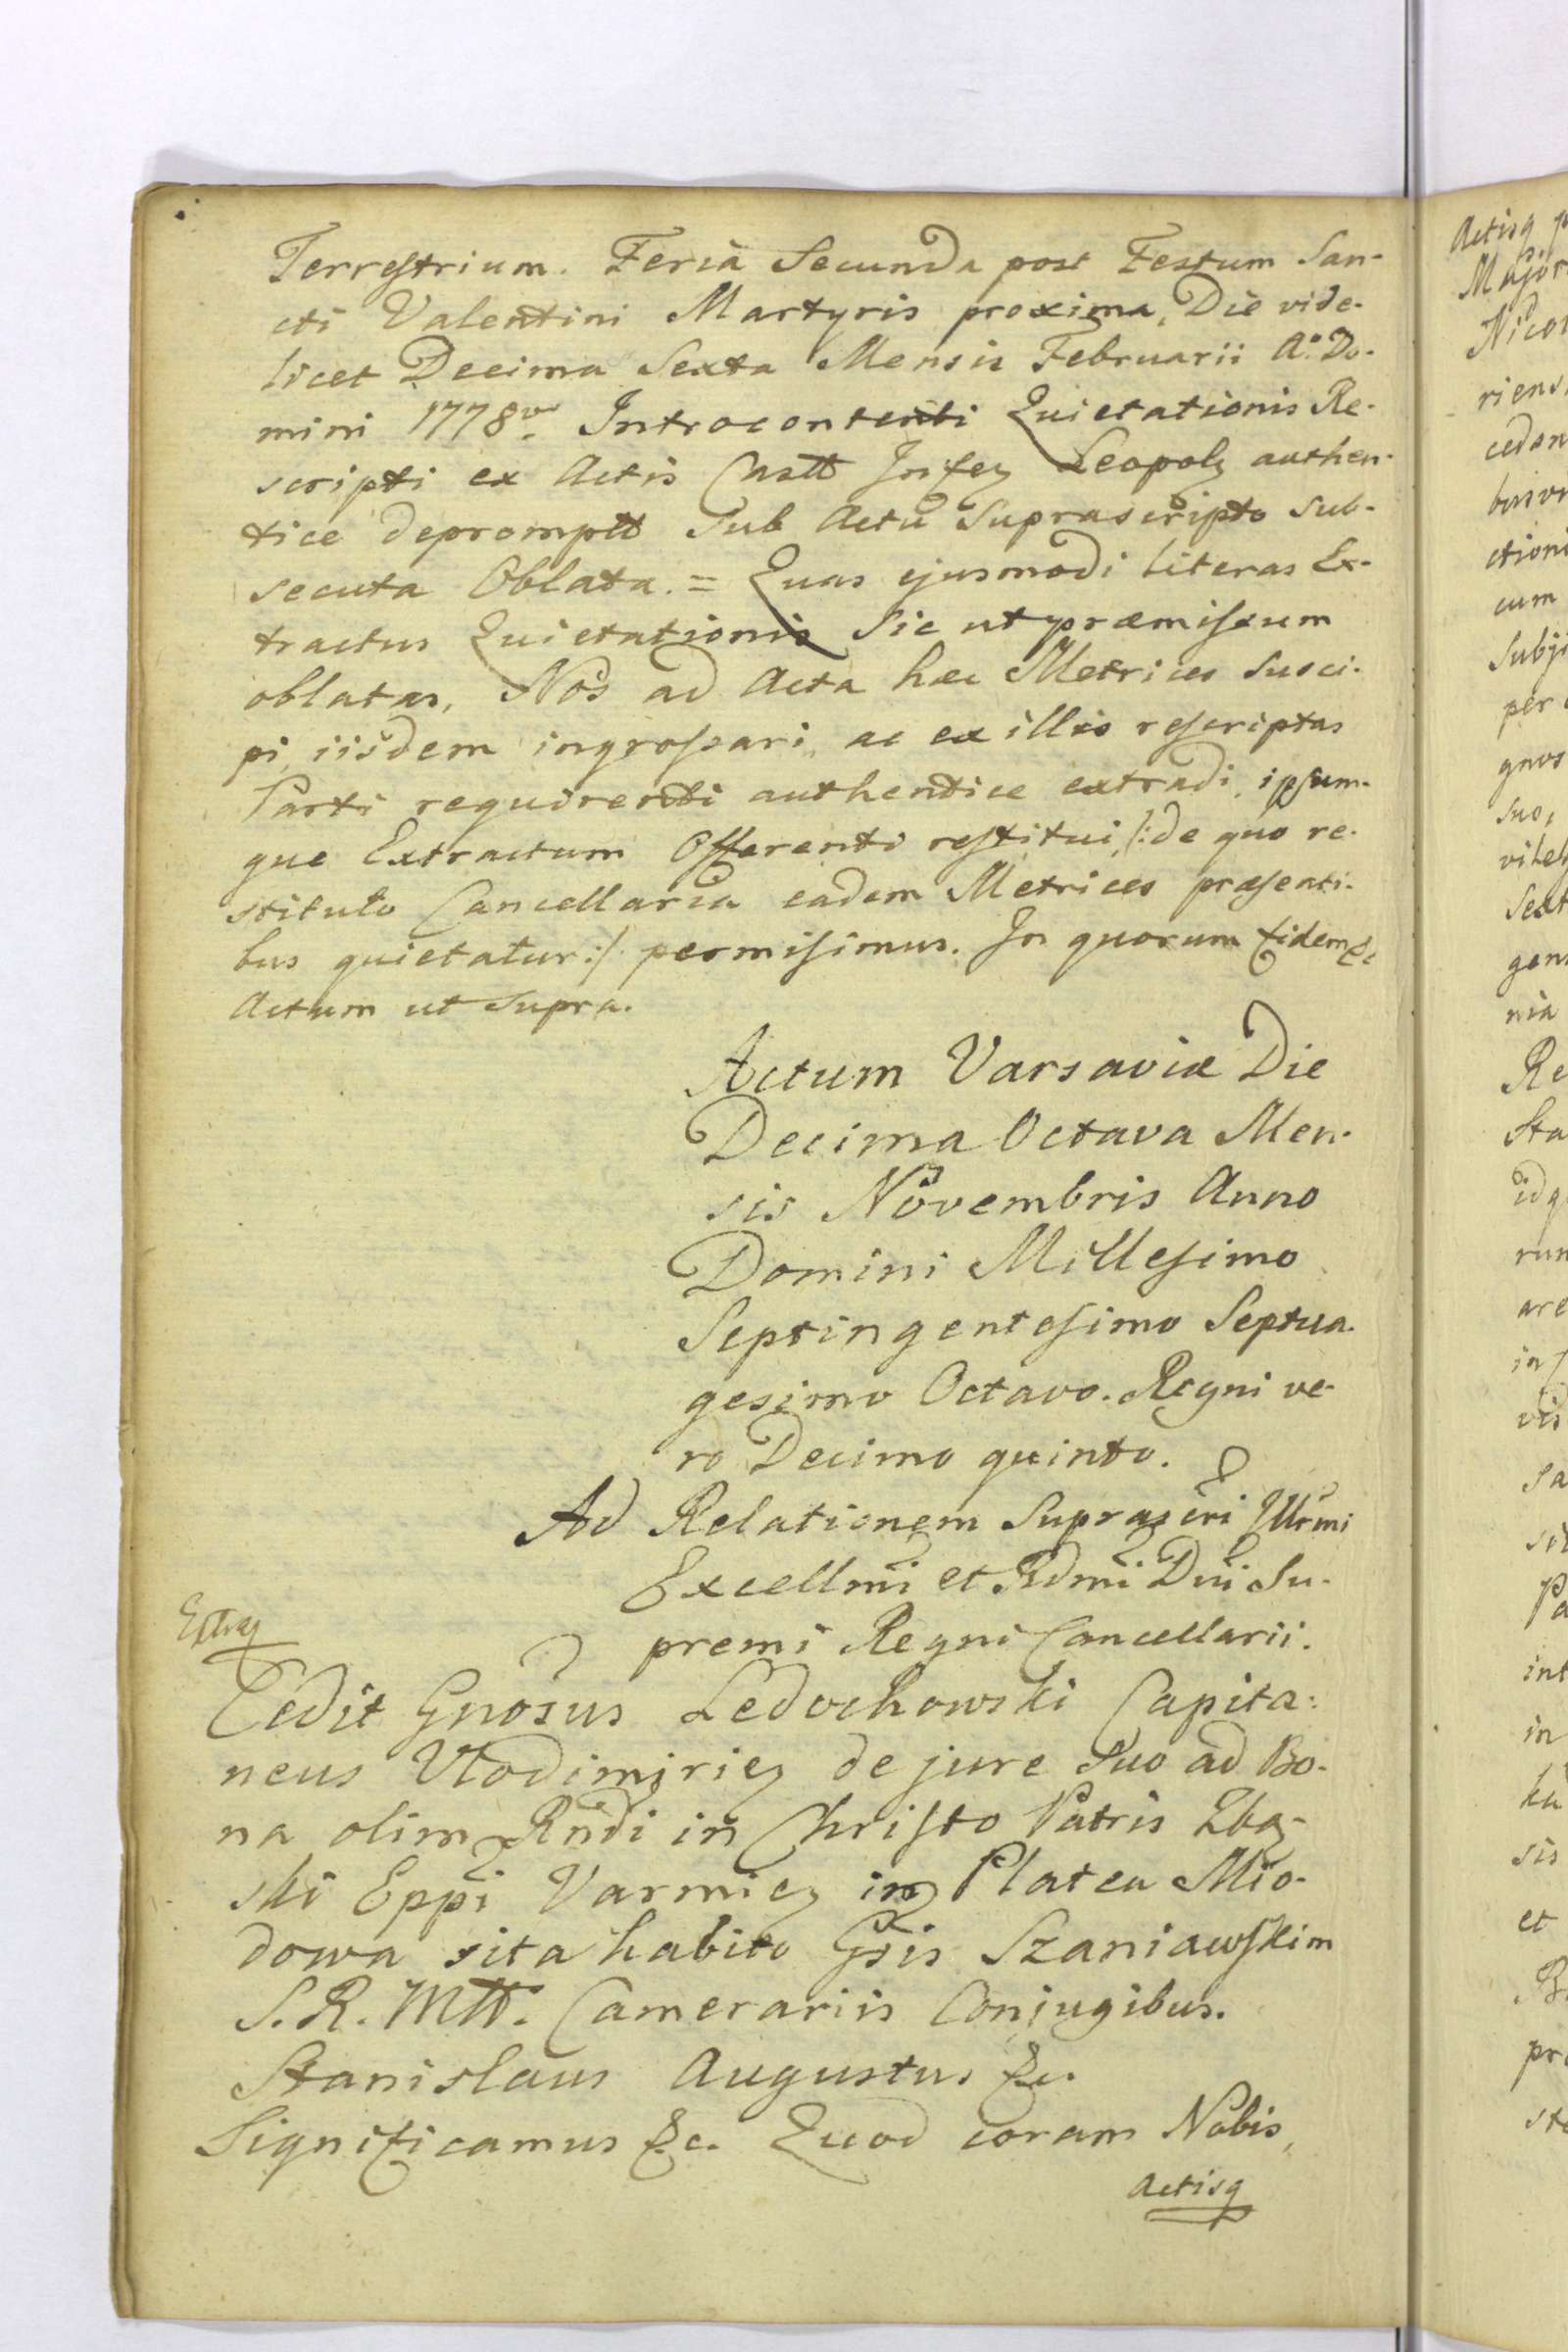 Terrestrium. Feria Secunda post Festum San-
cti Valentini Martyris proxima, Die vide-
licet Decima Sexta Mensis Februarii Aº Do-
mini 1778vo. Introcontenti Quietationis Re-
scripti ex Actis Castt Infez Leopolz authen-
tice depromptt Sub Actu Suprascripto Sub-
secuta Oblata. = Quas ejusmodi literas Ex-
tractus Quietationis Sic ut præmissum
oblatas, Nos ad Acta hæc Metrices Susci-
pi, iisdem ingrossari, ac ex illis rescriptas
Parti requirenti authentice extradi, ipsum-
que Extractum Offerenti restitui /: de quo re-
stituto Cancellaria eadem Metrices præsenti-
bus quietatur :/ permisimus. In quorum Fidem &c
Actum ut Supra.
Actum Varsaviæ Die
Decima Octava Men-
sis Novembris Anno
Domini Millesimo
Septingentesimo Septua-
gesimo Octavo. Regni ve-
ro Decimo quinto.
Ad Relationem Suprascri Illrmi
Excellmi et Rdmi Dni Su-
premi Regni Cancellarii.
Cedit Gnosus Ledochowski Capita:
neus Vlodimiriez de jure Suo ad Bo-
na olim Rndi in Christo Patris
Eppi Varmiez in Platea Mio-
dowa sita habito Gsis Szaniawskim
S. R. Mtt. Camerariis Conjugibus.
Stanislaus Augustus &c.
Significamus &c. Quod coram Nobis,
Actisq
Actisq
Major
riens
cum
per
gnos
suo,
nia
Re
Sta
are
vis
int
in
sis
et